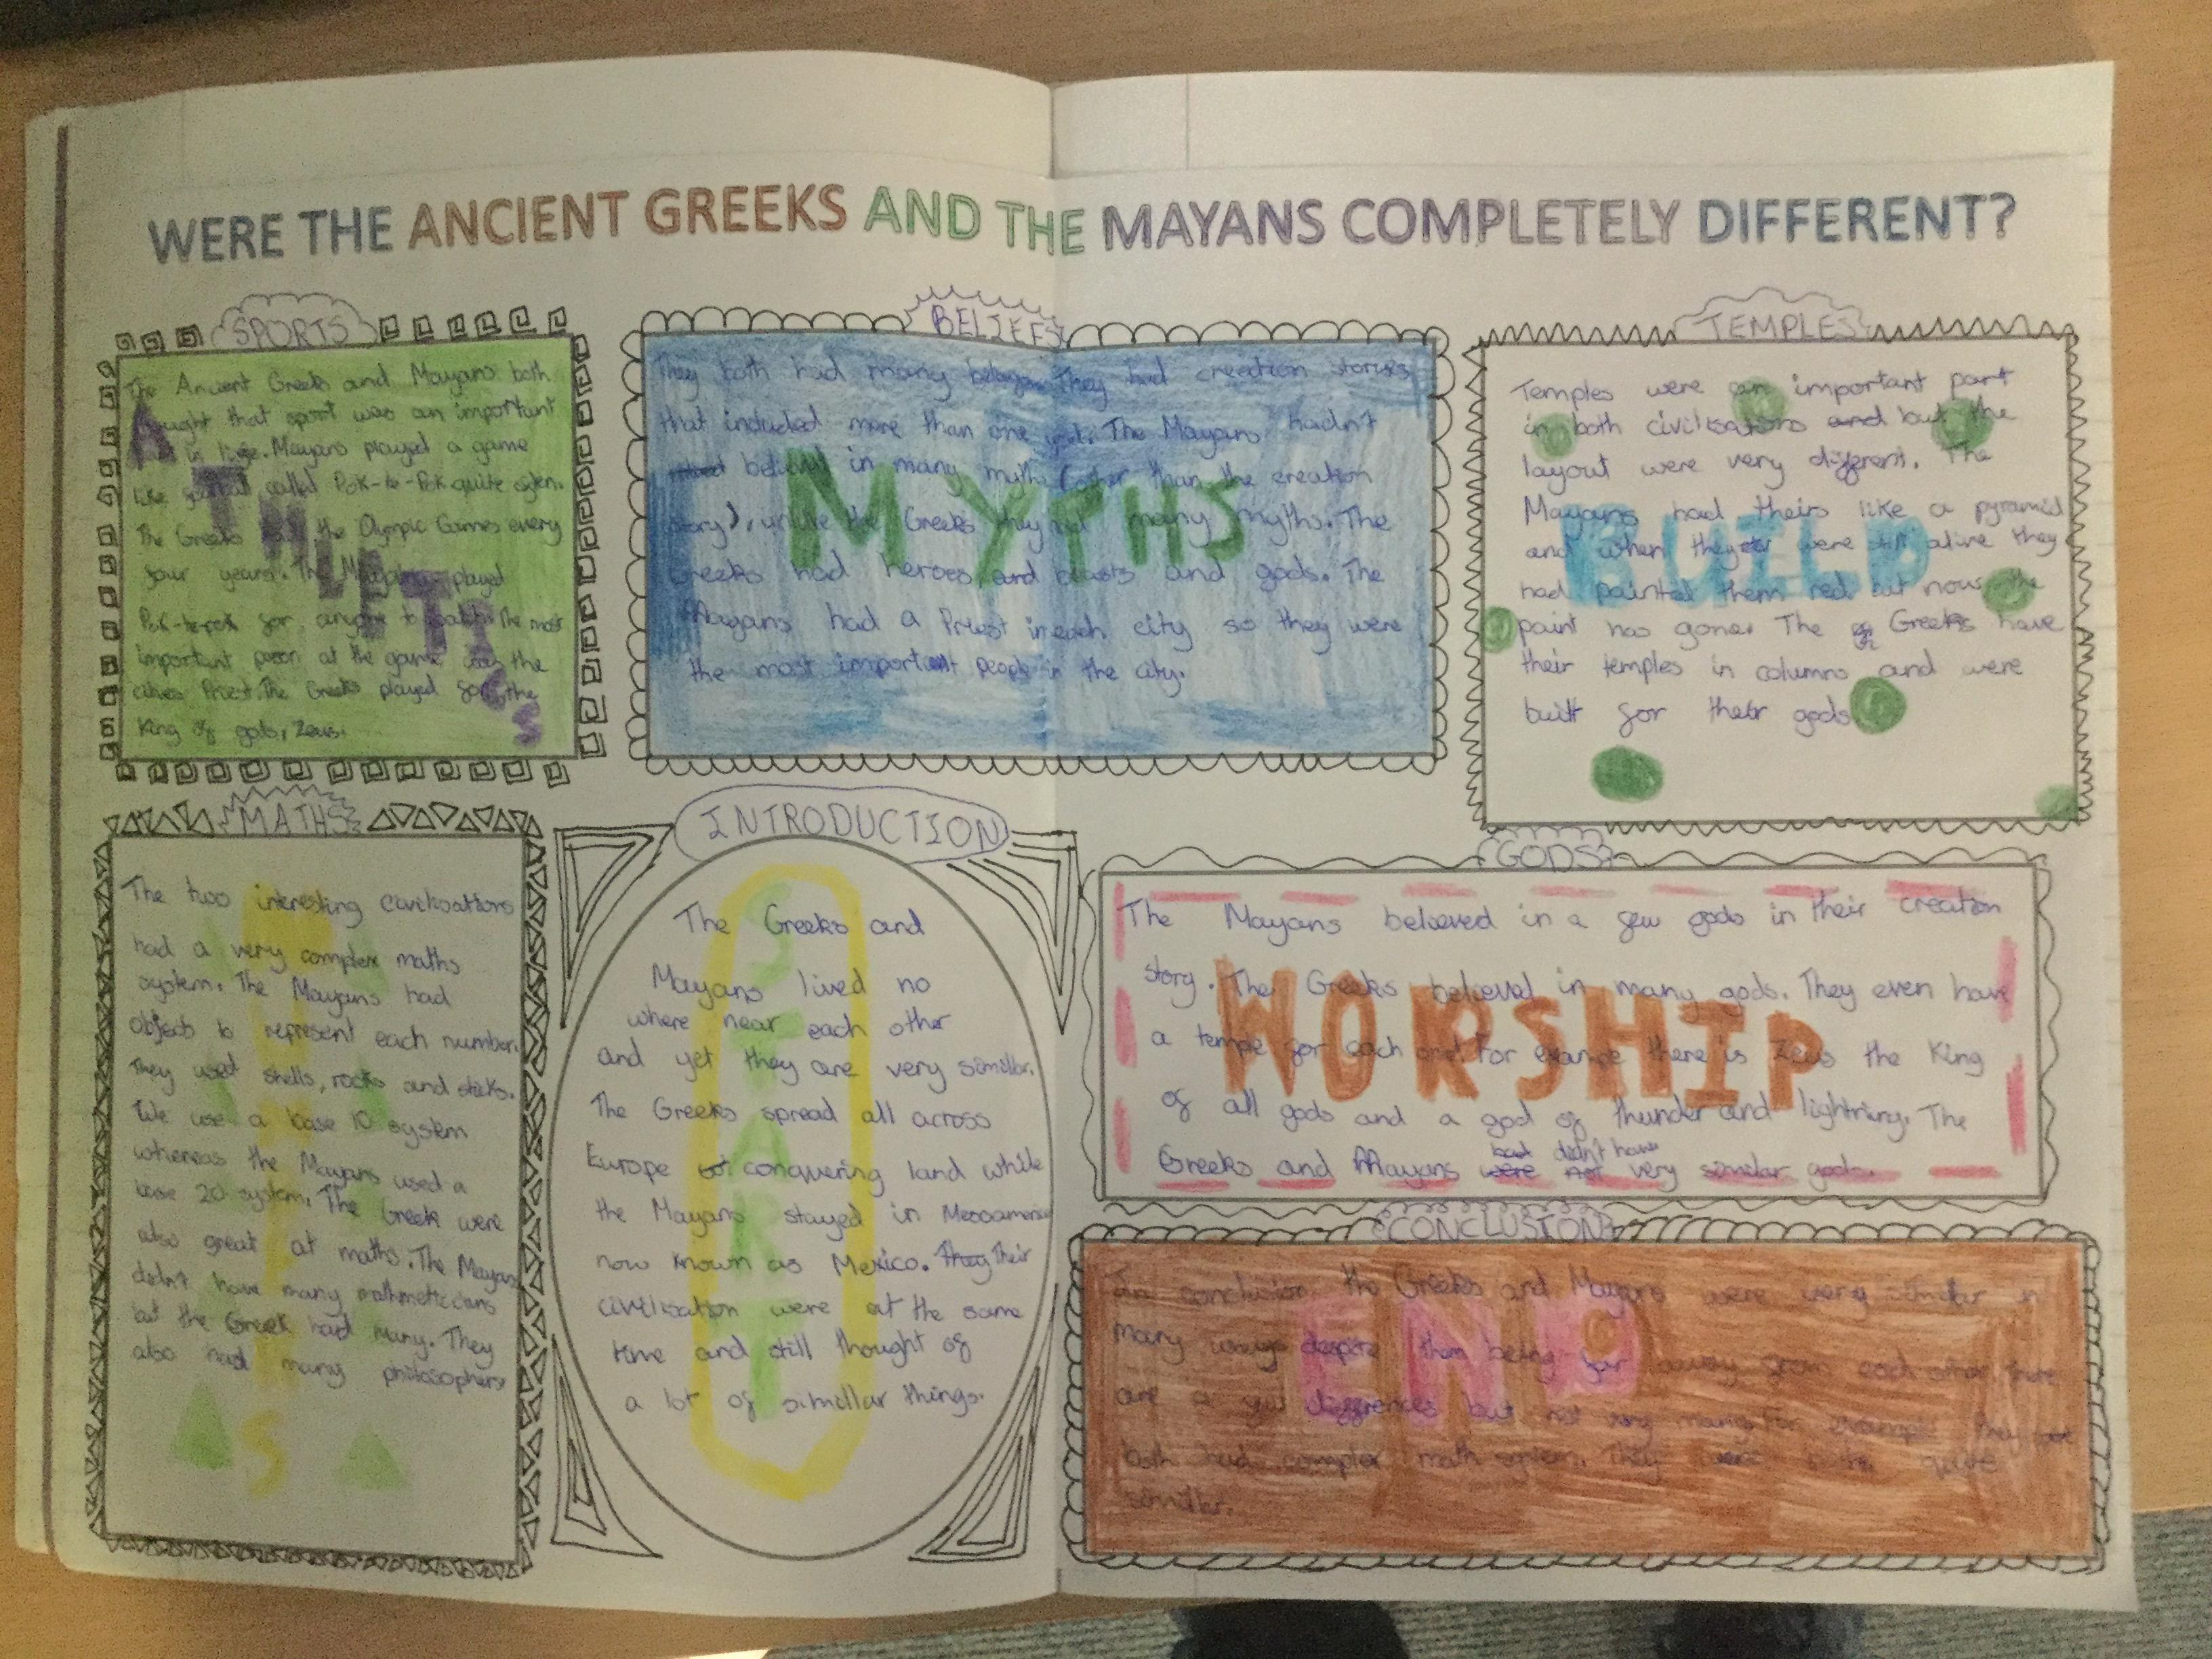 WERE THE ANCIENT GREEKS AND THE MAYANS COMPLETELY DIFFERENT?
SPORTS
The Ancient Greeks and Mayans both
that sport was an important
in life. Mayans played a game
like called Pok-te-Pok quite often.
The Greeks the Olympic Games every
four years. The played
Pok-te-pok for anyone to watch. The most
important person at the game was the
cities Priest. The Greeks played for the
King of gods, Zeus.
ATHLETICS
BELIEFS
They both had many They had creation stories
that included more than one god. The Mayans hadn't
believed in many myths (other than the creation
story), unlike the Greeks they had many myths. The
Greeks had heroes, and beasts and gods. The
Mayans had a Priest in each city so they were
the most important people in the city.
MYTHS
TEMPLES
Temples were an important part
in both civilisations and but the
layout were very different. The
Mayans had theirs like a pyramid
and when they were still alive they
had painted them red but now the
paint has gone. The Greeks have
their temples in columns and were
built for their gods
BUILD
MATHS
The two interesting civilisations
had a very complex maths
system. The Mayans had
objects to represent each number.
They used shells, rocks and sticks.
We use a base 10 system
whereas the Mayans used a
base 20 system. The Greek were
also great at maths. The Mayans
didn't have many mathmeticians
but the Greek had many. They
also had many philosophers
INTRODUCTION
The Greeks and
Mayans lived no
where near each other
and yet they are very simillar.
The Greeks spread all across
Europe conquering land while
the Mayans stayed in Mesoamerica
now known as Mexico. They Their
civilisation were at the same
time and still thought of
a lot of simillar things.
START
GODS
The Mayans believed in a few gods in their creation
story. The Greeks believed in many gods. They even have
a temple for each one. For example there is Zeus the King
of all gods and a god of thunder and lightning. The
had didn't have
Greeks and Mayans were not very similar gods.
WORSHIP
CONCLUSION
In conclusion, the Greeks and Mayans were very similar in
many ways despite them being far away from each other. there
are a few diffrences but not very many. For example they
both had complex math system. They were both quite
simillar.
END